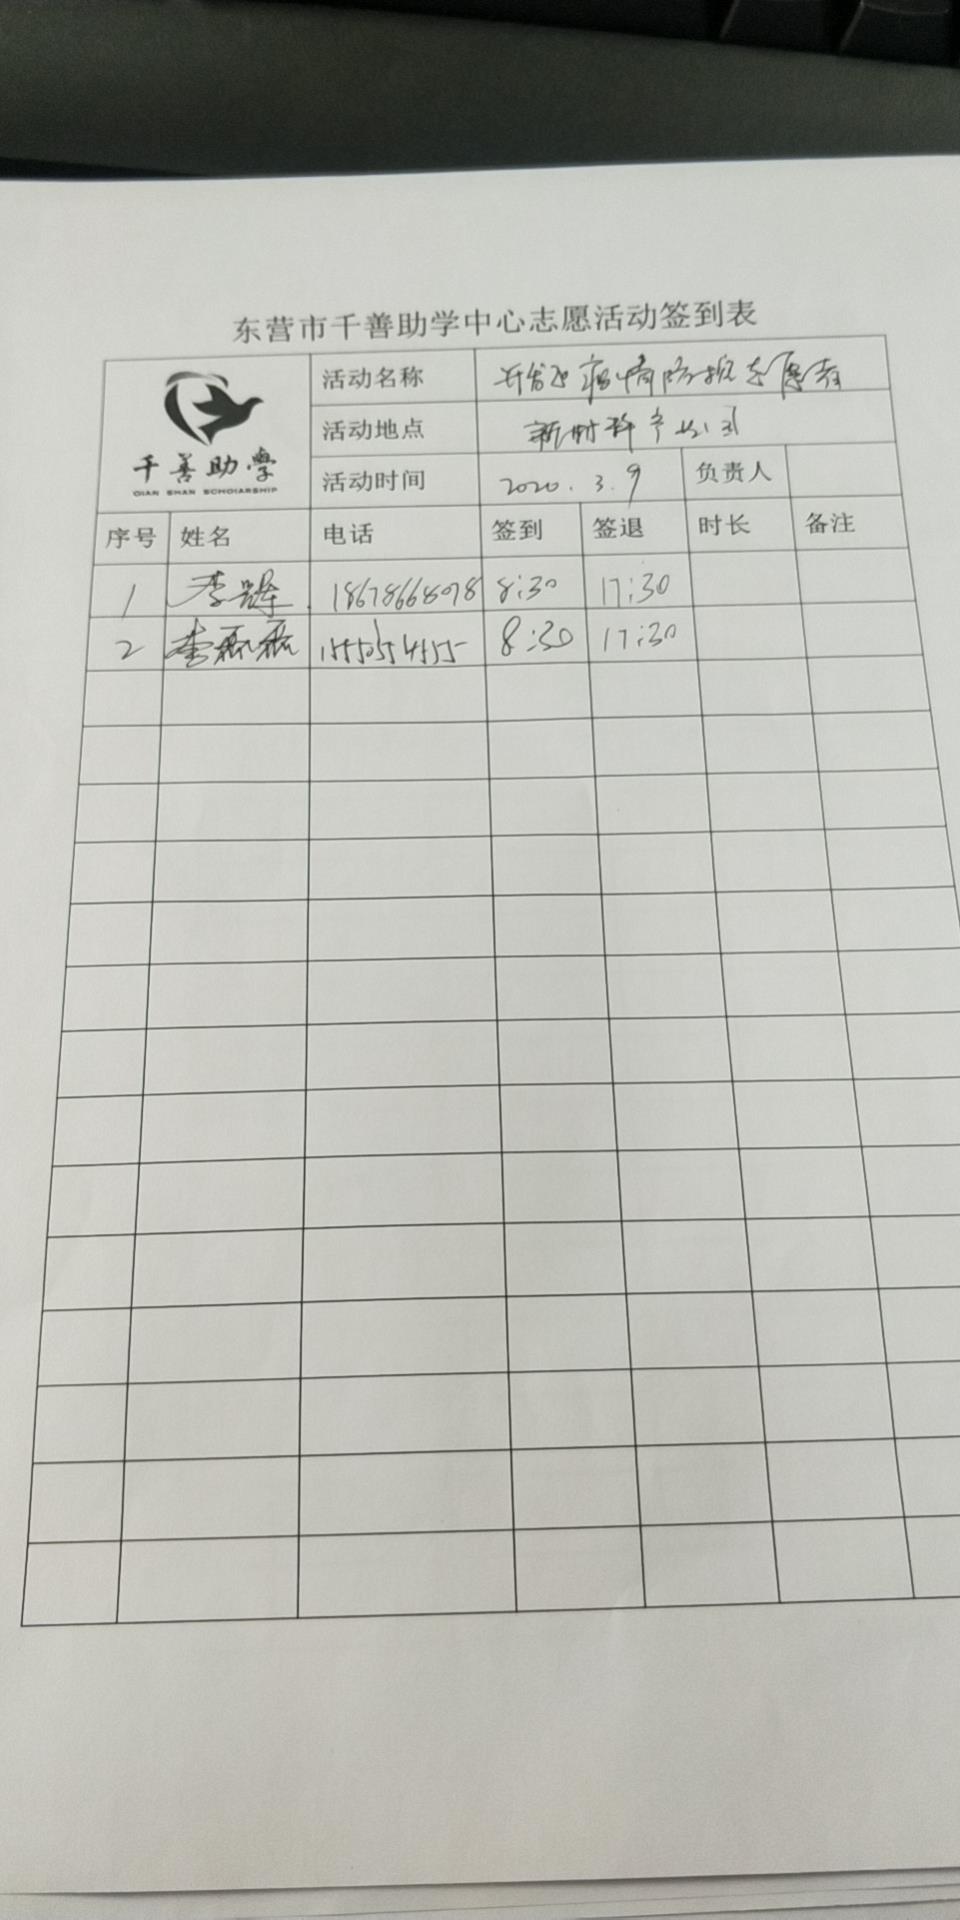 东营市千善助学中心志愿活动签到表
千善助学
QIAN SHAN SCHOLARSHIP
活动名称 开发区疫情防控志愿者
活动地点 新时
活动时间 2020.3.9 负责人
序号 姓名 电话 签到 签退 时长 备注
1 李 18678668078 8:30 17:30
2 李磊磊 8:30 17:30